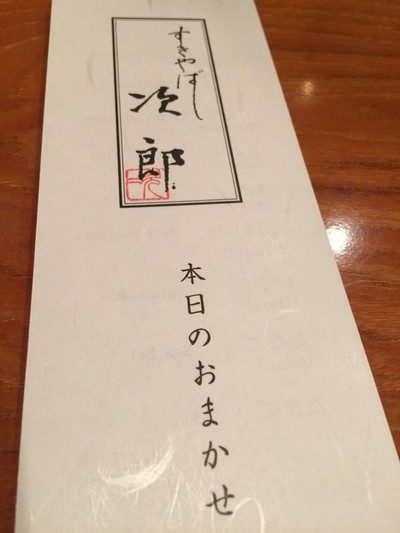 すきやばし
次郎
本日のおまかせ